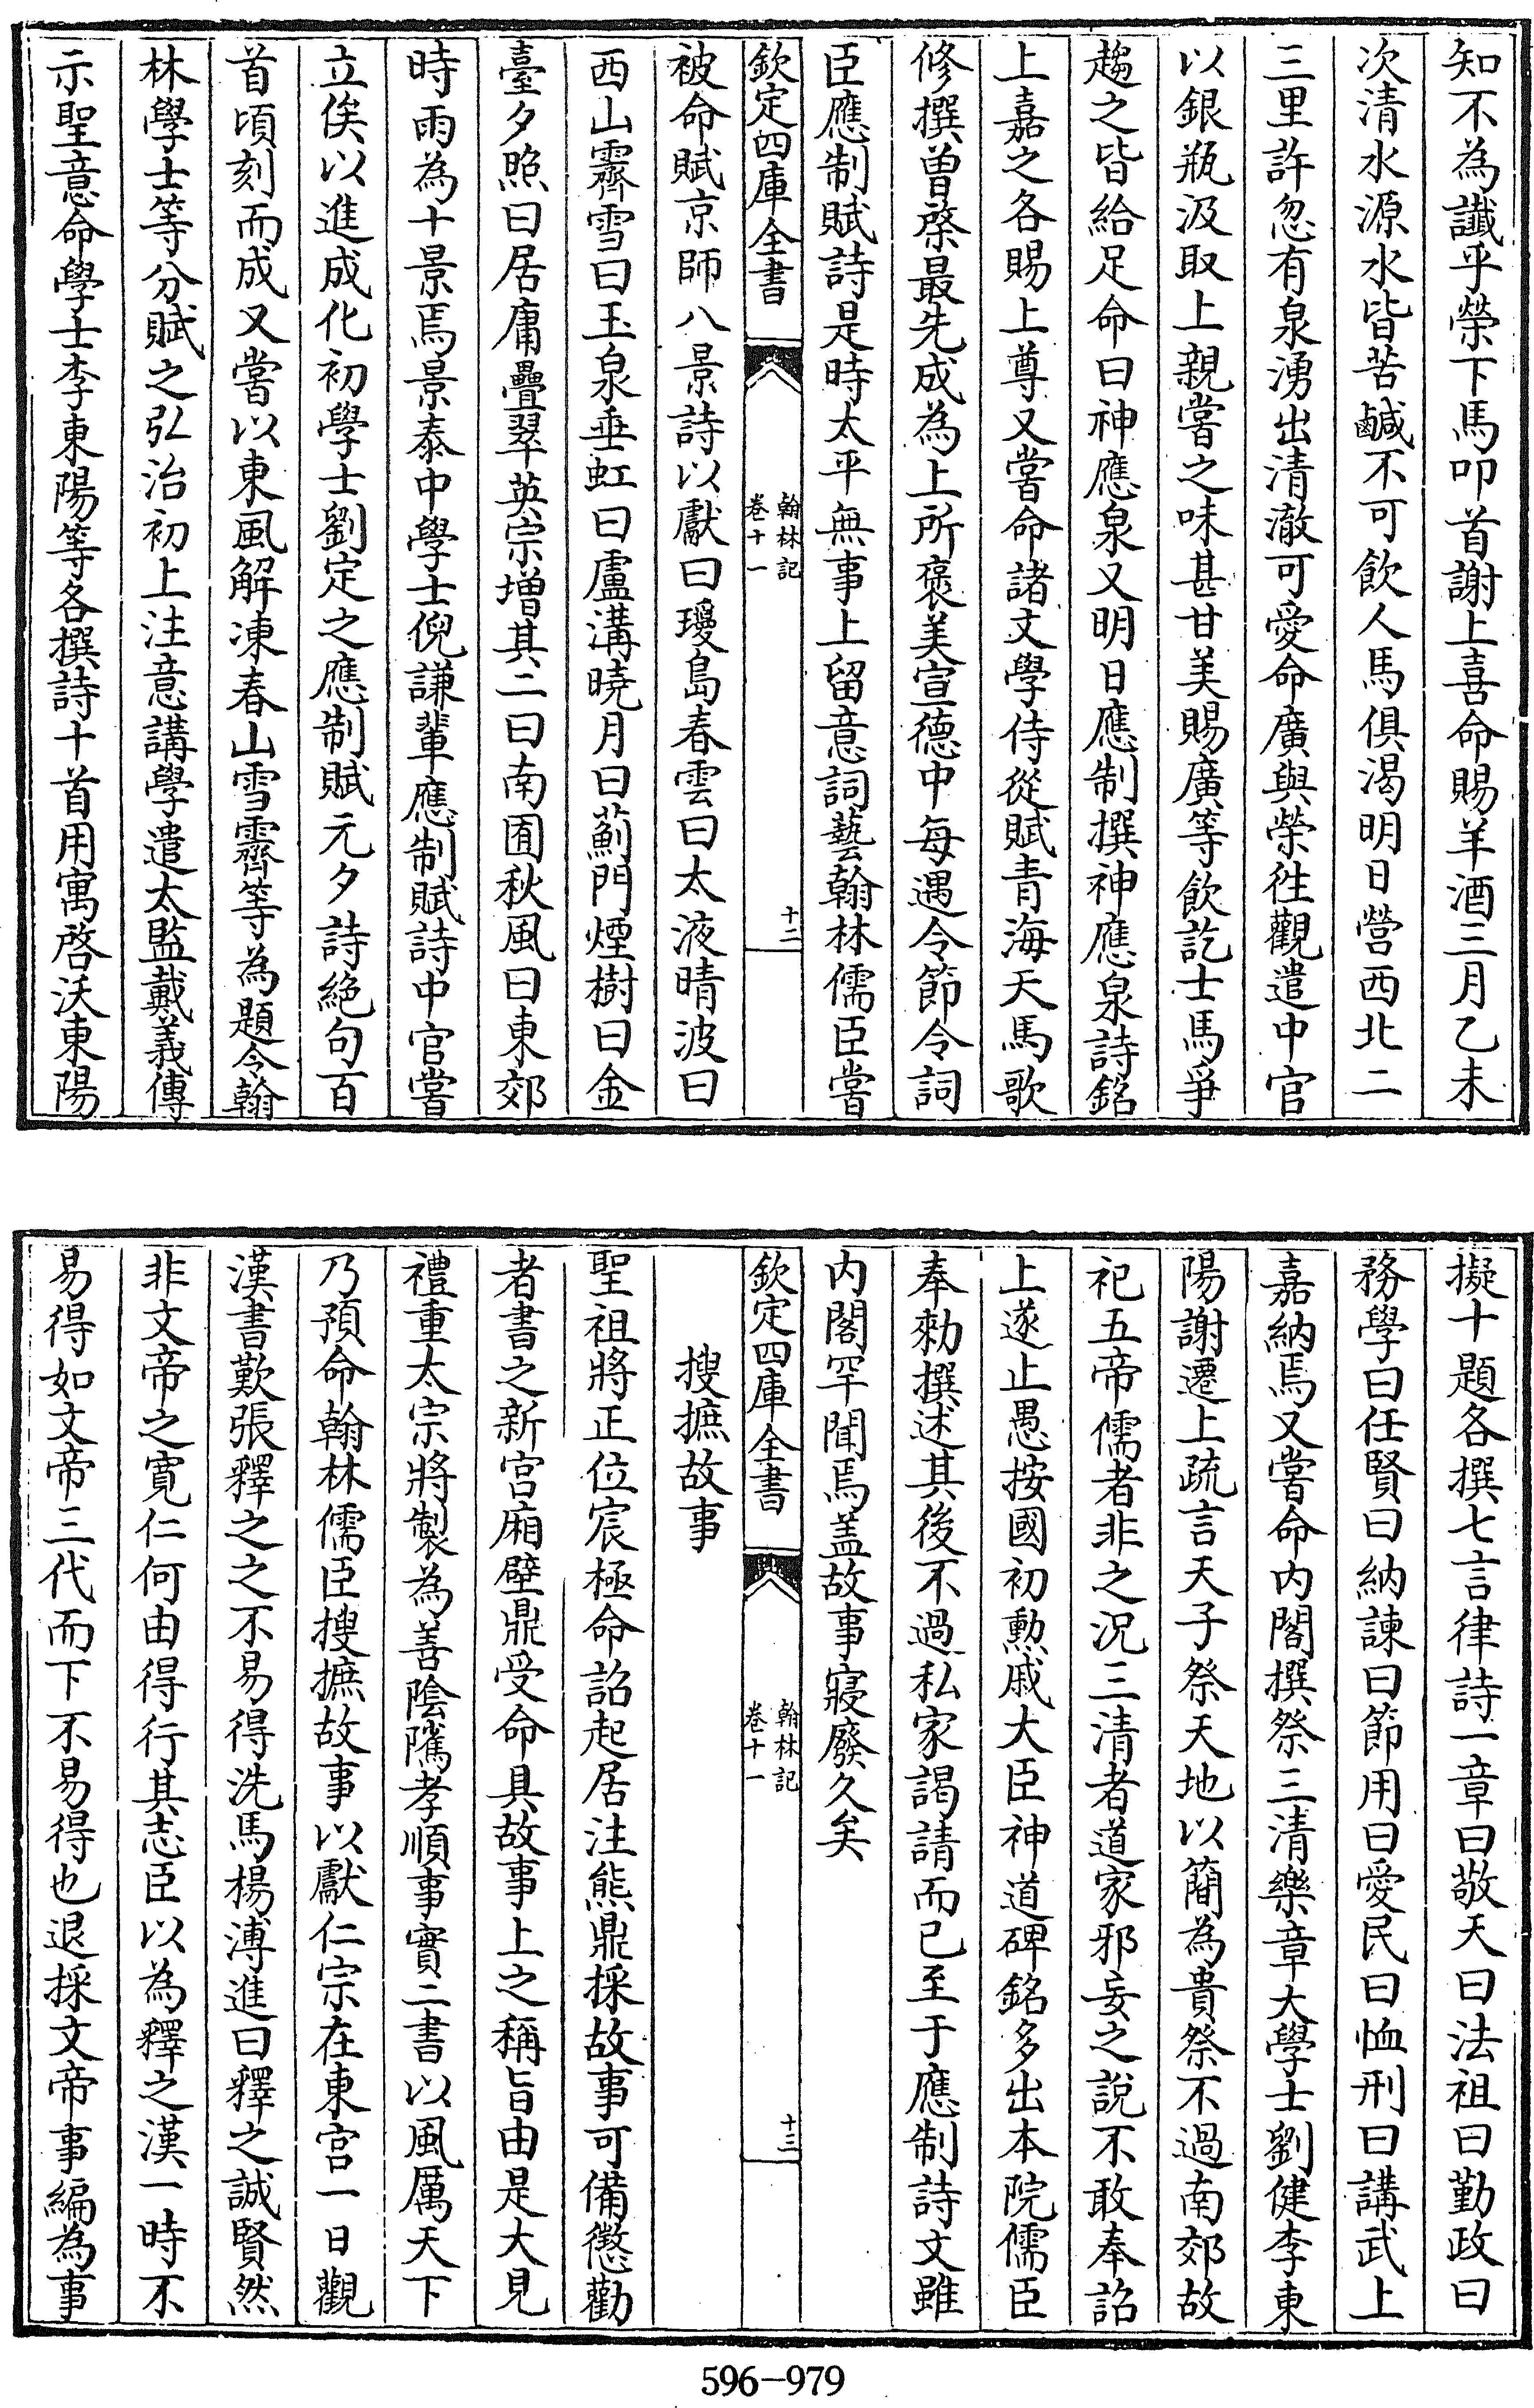 知不為讖乎榮下馬叩首謝上喜命賜羊酒三月乙未
次清水源水皆苦鹹不可飲人馬俱渴明日營西北二
三里許忽有泉湧出清澈可愛命廣與榮徃觀遣中官
以銀瓶汲取上親嘗之味甚甘美賜廣等飲訖士馬爭
趨之皆給足命曰神應泉又明日應制撰神應泉詩銘
上嘉之各賜上尊又嘗命諸文學侍從賦青海天馬歌
修撰曽棨最先成為上所褒美宣德中每遇令節令詞
臣應制賦詩是時太平無事上留意詞藝翰林儒臣嘗
欽定四庫全書
翰林記
卷十一
十二
被命賦京師八景詩以獻曰瓊島春雲曰太液晴波曰
西山霽雪曰玉泉垂虹曰盧溝曉月曰薊門煙樹曰金
臺夕照曰居庸疊翠英宗増其二曰南囿秋風曰東郊
時雨為十景焉景泰中學士倪謙輩應制賦詩中官嘗
立俟以進成化初學士劉定之應制賦元夕詩絶句百
首頃刻而成又嘗以東風解凍春山雪霽等為題令翰
林學士等分賦之弘治初上注意講學遣太監戴義傳
示聖意命學士李東陽等各撰詩十首用寓啓沃東陽
擬十題各撰七言律詩一章曰敬天曰法祖曰勤政曰
務學曰任賢曰納諫曰節用曰愛民曰恤刑曰講武上
嘉納焉又嘗命内閣撰祭三清樂章大學士劉健李東
陽謝遷上疏言天子祭天地以簡為貴祭不過南郊故
祀五帝儒者非之況三清者道家邪妄之說不敢奉詔
上遂止愚按國初勲戚大臣神道碑銘多出本院儒臣
奉勅撰述其後不過私家謁請而已至于應制詩文雖
内閣罕聞焉盖故事寢廢久矣
欽定四庫全書
翰林記
卷十一
十三
搜摭故事
聖祖將正位宸極命詔起居注熊鼎採故事可備懲勸
者書之新宫廂壁鼎受命具故事上之稱旨由是大見
禮重太宗將製為善陰隲孝順事實二書以風厲天下
乃預命翰林儒臣搜摭故事以獻仁宗在東宫一日觀
漢書歎張釋之之不易得洗馬楊溥進曰釋之誠賢然
非文帝之寛仁何由得行其志臣以為釋之漢一時不
易得如文帝三代而下不易得也退採文帝事編為事
596-979